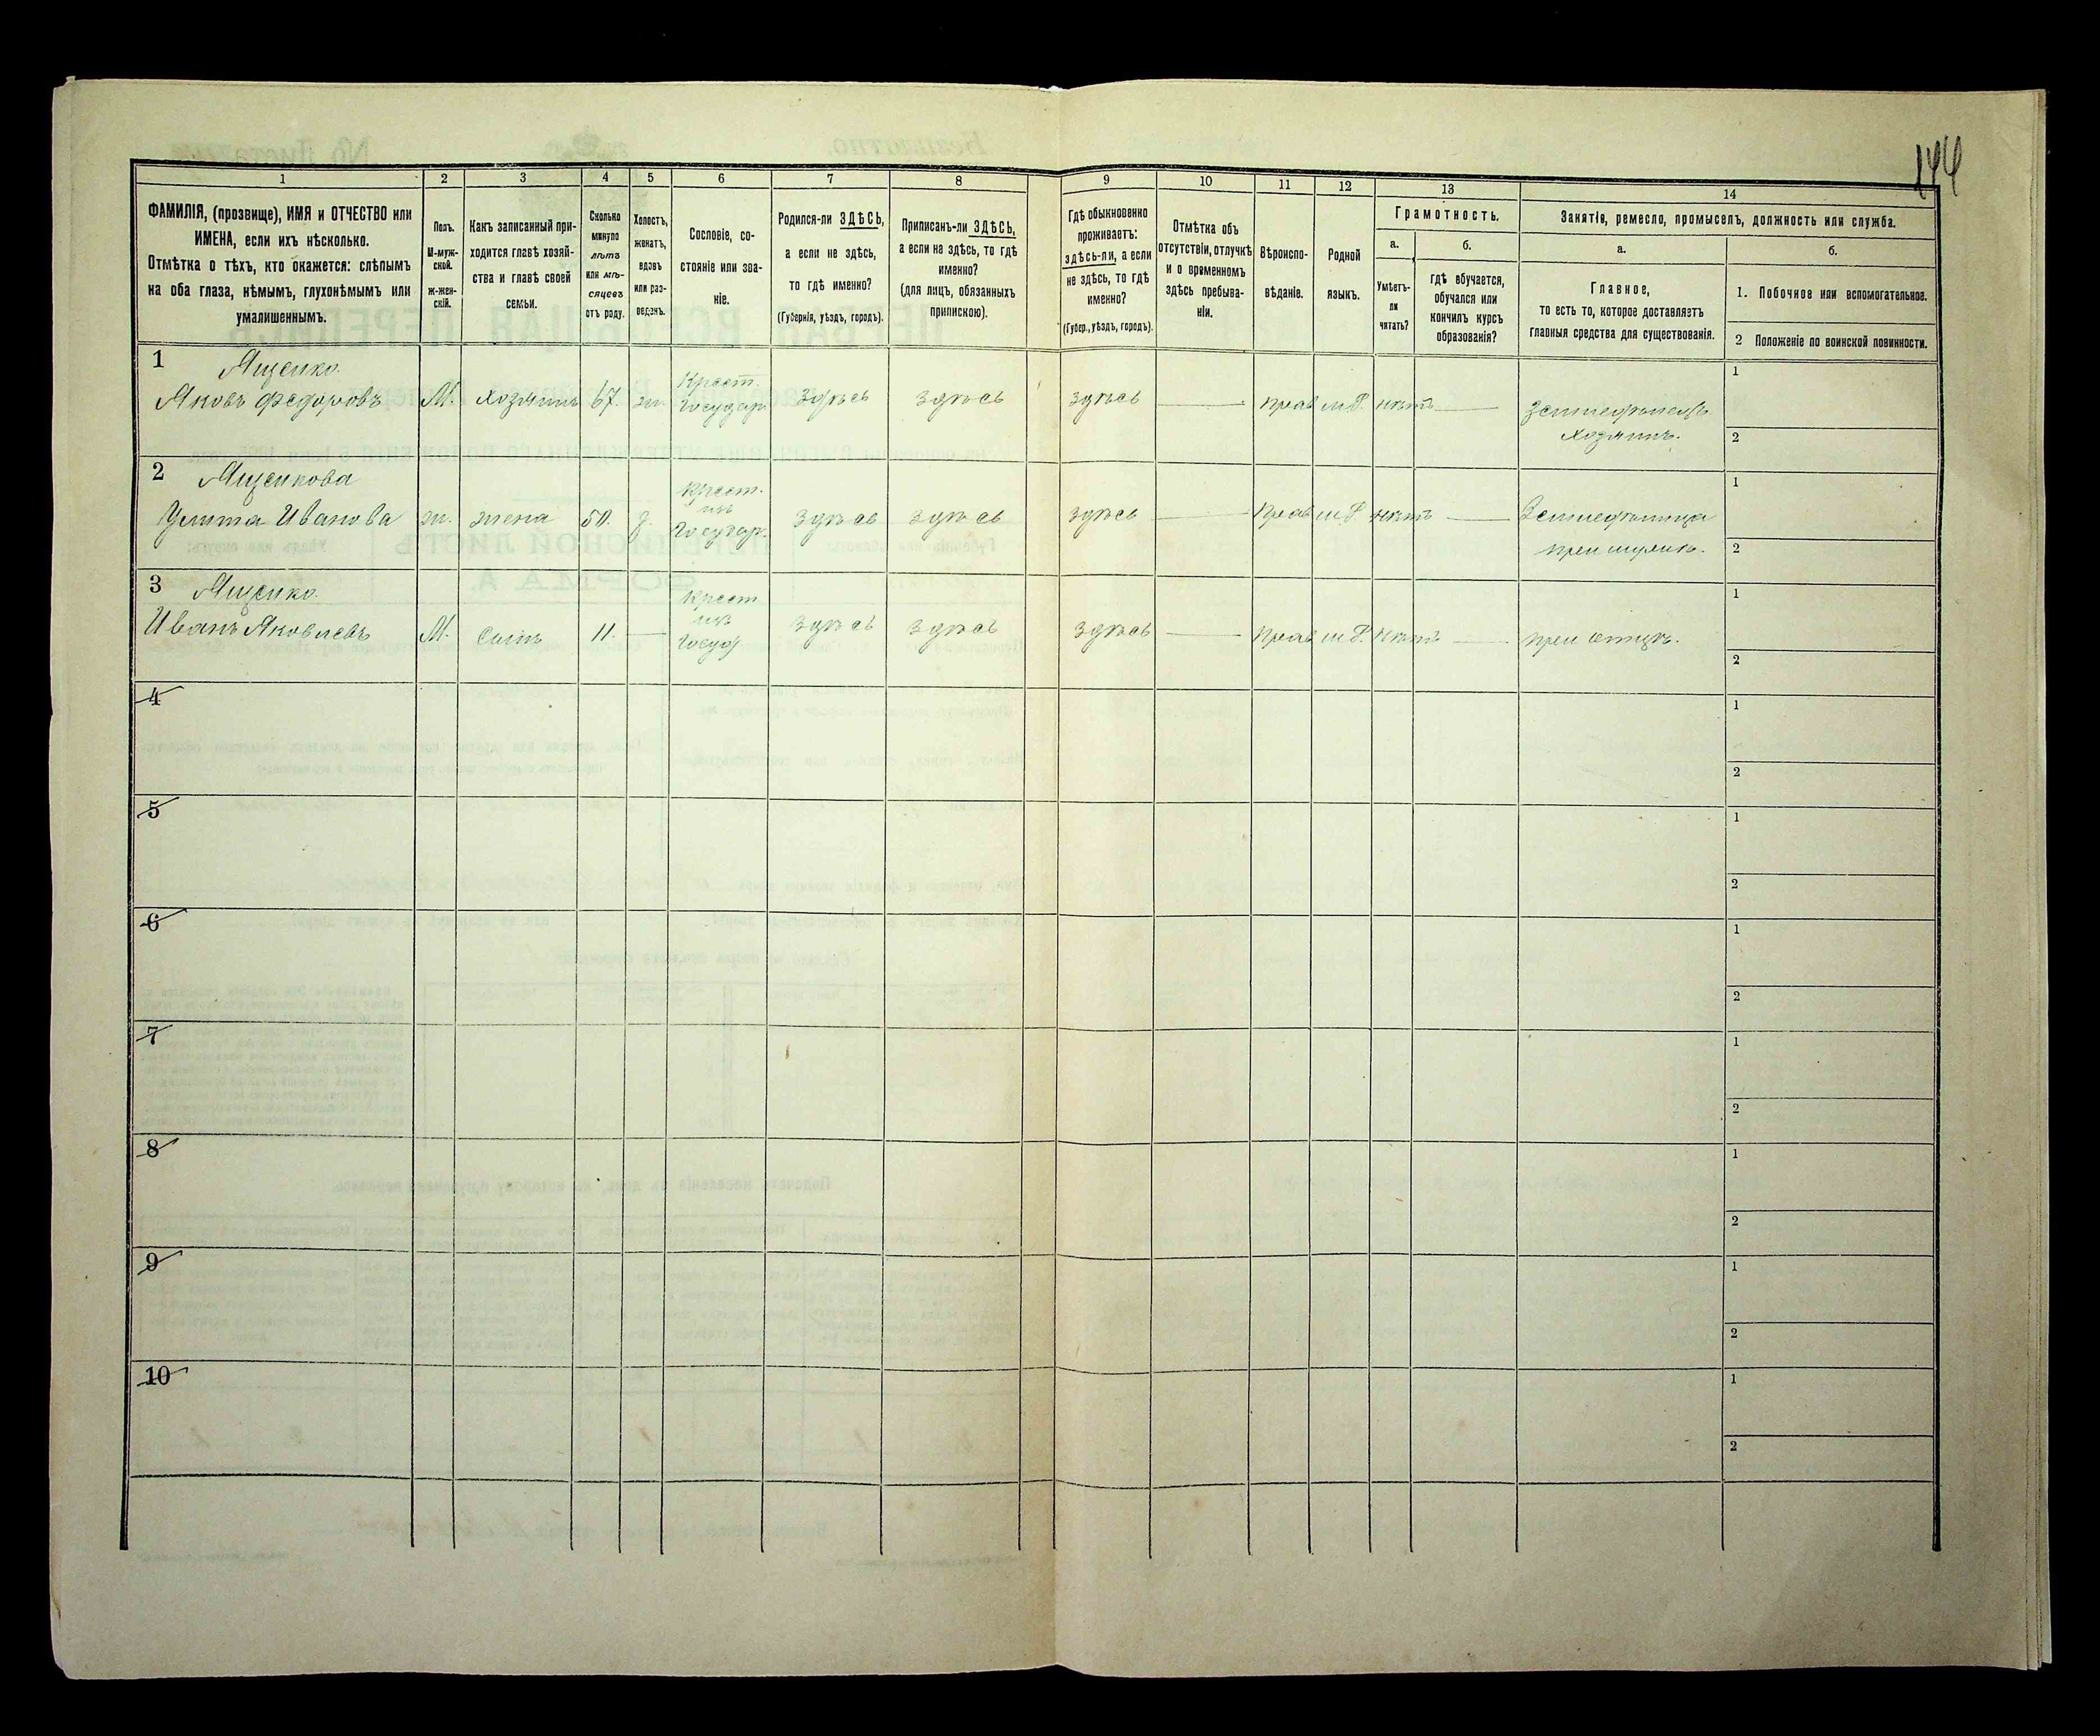 144
1
2
3
4
5
6
7
8
9
10
11
12
13
14
ФАМИЛІЯ, (прозвище), ИМЯ и ОТЧЕСТВО или
ИМЕНА, если ихъ нѣсколько.
Отмѣтка о тѣхъ, кто окажется: слѣпымъ
на оба глаза, нѣмымъ, глухонѣмымъ или
умалишеннымъ.
Полъ.
М-муж-
ской.
ж-жен-
скій.
Какъ записанный при-
ходится главѣ хозяй-
ства и главѣ своей
семьи.
Сколько
минуло
лѣтъ
или мѣ-
сяцевъ
отъ роду.
Холостъ,
женатъ,
вдовъ
или раз-
веденъ.
Сословіе, со-
стояніе или зва-
ніе.
Родился-ли ЗДѢСЬ,
а если не здѣсь,
то гдѣ именно?
(Губернія, уѣздъ, городъ).
Приписанъ-ли ЗДѢСЬ,
а если не здѣсь, то гдѣ
именно?
(для лицъ, обязанныхъ
припискою).
Гдѣ обыкновенно
проживаетъ:
здѣсь-ли, а если
не здѣсь, то гдѣ
именно?
(Губер., уѣздъ, городъ).
Отмѣтка объ
отсутствіи, отлучкѣ
и о временномъ
здѣсь пребыва-
ніи.
Вѣроиспо-
вѣданіе.
Родной
языкъ.
Грамотность.
а.
Умѣетъ-
ли
читать?
б.
гдѣ обучается,
обучался или
кончилъ курсъ
образованія?
Занятія, ремесло, промыселъ, должность или служба.
а.
Главное,
то есть то, которое доставляетъ
главныя средства для существованія.
б.
1. Побочное или вспомогательное.
2 Положеніе по воинской повинности.
1 Ященко.
Яковъ Федоровъ М. хозяинъ 67. ж. Крест. Государ. здѣсь здѣсь здѣсь — Прав. м.Р. нѣтъ — Земледѣлецъ
хозяинъ.
1
2
2 Ященкова
Улита Иванова ж. жена 50. з. Крест. изъ Государ. здѣсь здѣсь здѣсь — Прав. м.Р. нѣтъ — Земледѣлица
при мужѣ.
1
2
3 Ященко.
Иванъ Яковлевъ М. сынъ 11. — Крест изъ Госуд здѣсь здѣсь здѣсь — Прав м.Р. нѣтъ — при отцѣ.
1
2
4
1
2
5
1
2
6
1
2
7
1
2
8
1
2
9
1
2
10
1
2